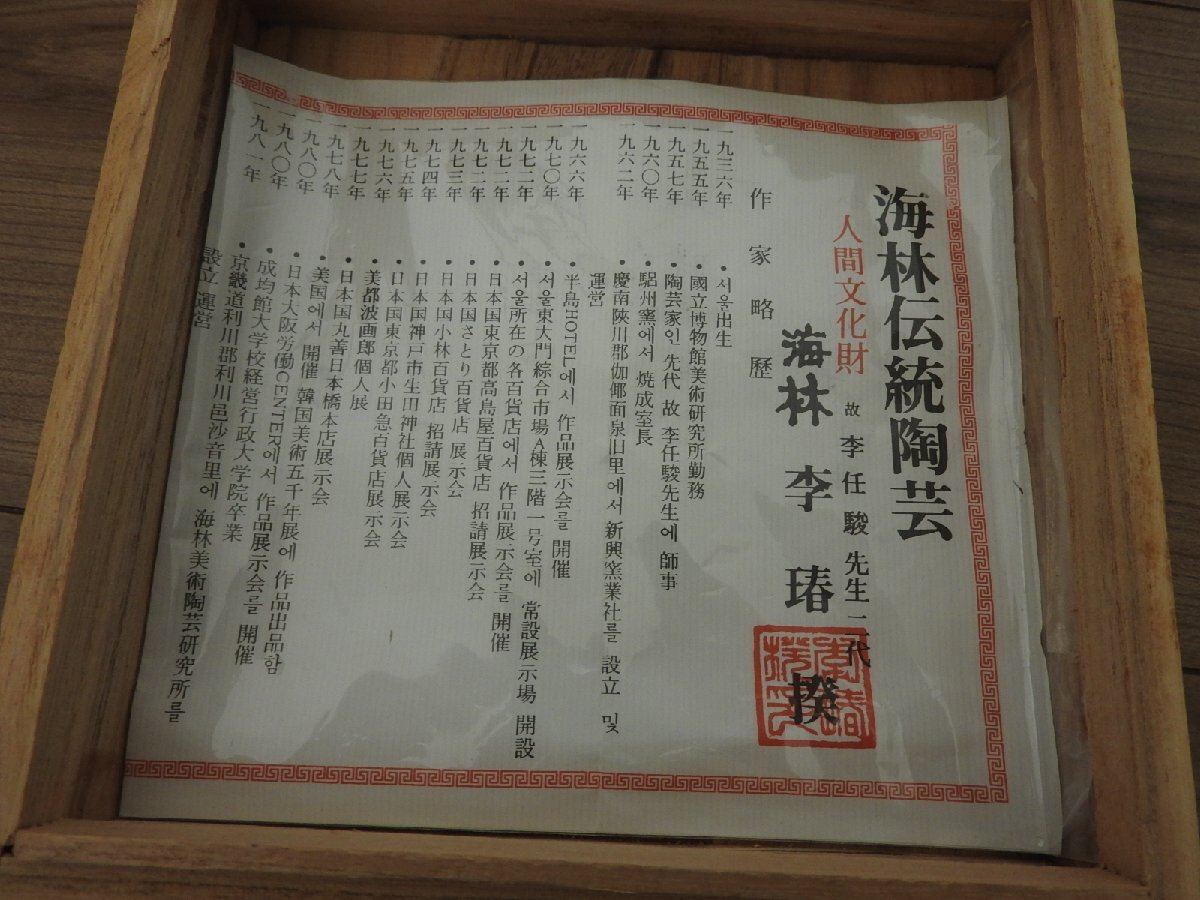 海林伝統陶芸
人間文化財 故 李任駿先生二代
海林 李 瑃 揆
作家略歴
一九三六年 • 서울出生
一九五五年 • 國立博物館美術研究所勤務
一九五七年 • 陶芸家인 先代 故 李任駿先生에 師事
一九六〇年 • 州窯에서 焼成室長
一九六二年 • 慶南陜川郡伽倻面泉旧里에서 新興窯業社를 設立 및
運営
一九六六年 • 半島HOTEL에서 作品展示会를 開催
一九七〇年 • 서울東大門綜合市場A棟三階一号室에 常設展示場 開設
一九七二年 • 서울所在의 各百貨店에서 作品展示会를 開催
一九七二年 • 日本国東京都高島屋百貨店 招請展示会
一九七二年 • 日本国さとり百貨店 展示会
一九七三年 • 日本国小林百貨店 招請展示会
一九七四年 • 日本国神戸市生田神社個人展示会
一九七五年 • 日本国東京都小田急百貨店展示会
一九七六年 • 美都波画郎個人展
一九七七年 • 日本国丸善日本橋本店展示会
一九七八年 • 美国에서 開催 韓国美術五千年展에 作品出品함
一九八〇年 • 日本大阪労働CENTER에서 作品展示会를 開催
一九八〇年 • 成均館大学校経営行政大学院卒業
一九八一年 • 京畿道利川郡利川邑沙音里에 海林美術陶芸研究所를
設立 運営